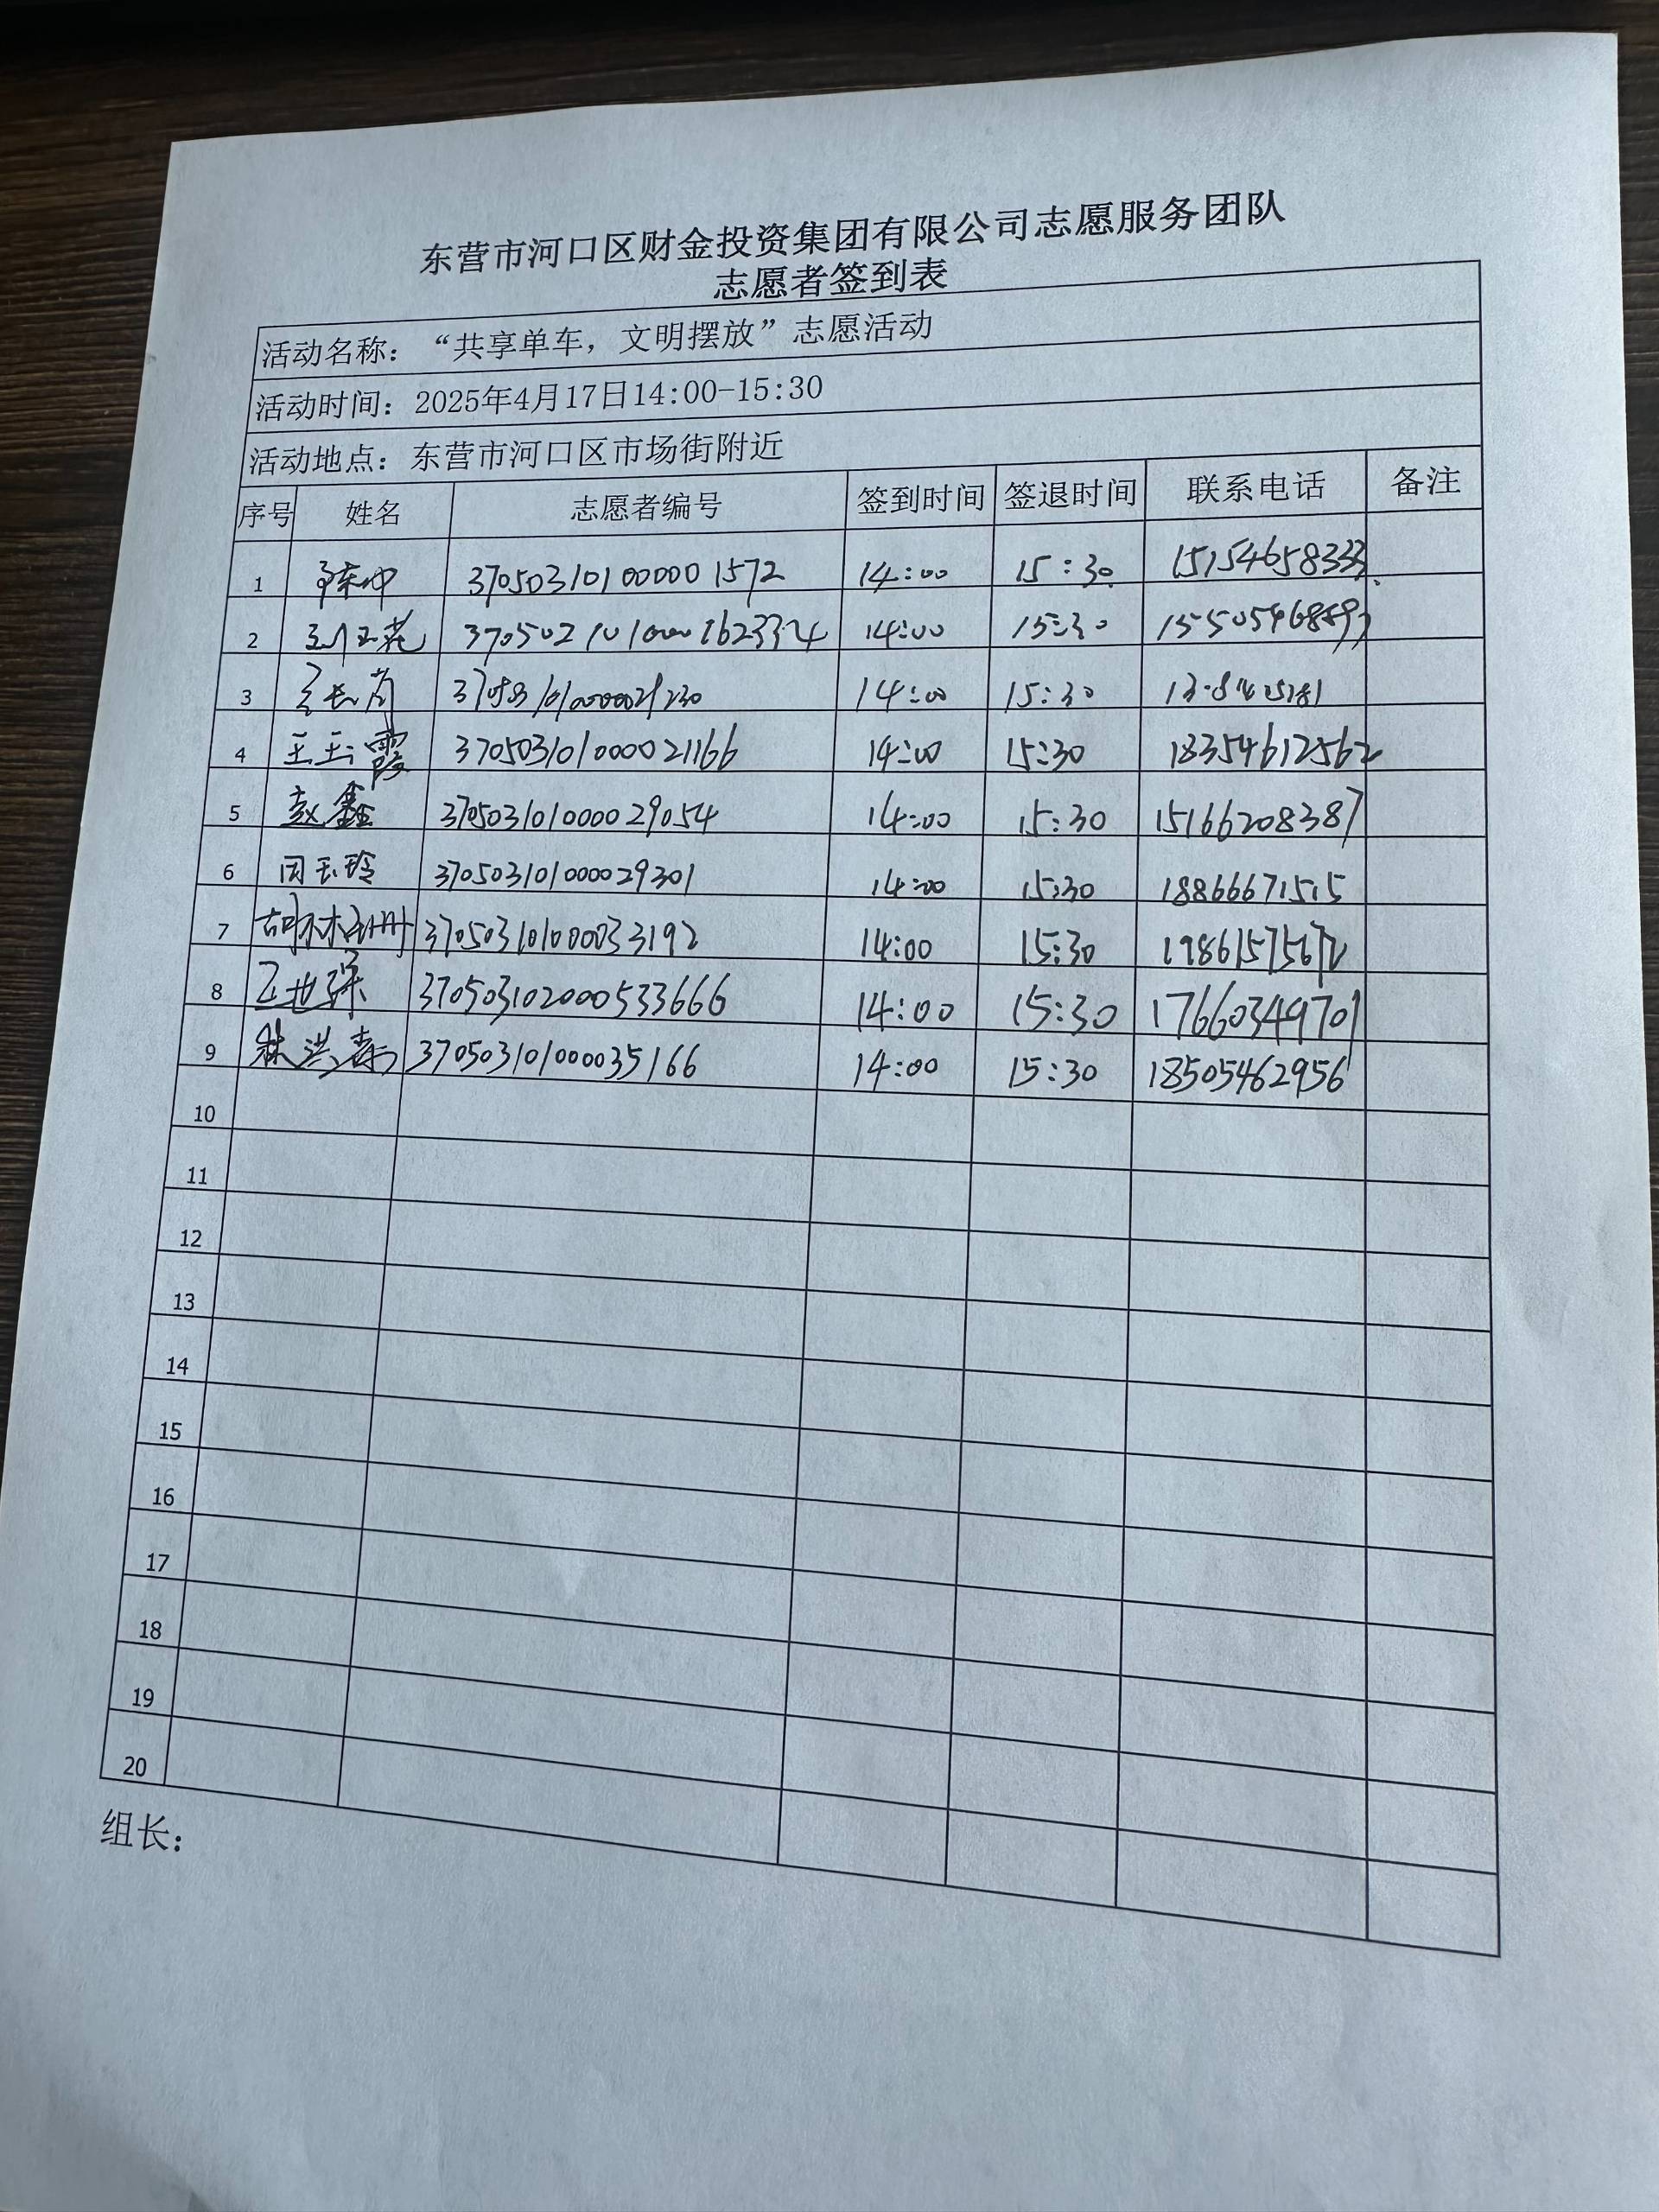 东营市河口区财金投资集团有限公司志愿服务团队
志愿者签到表
活动名称：“共享单车，文明摆放”志愿活动
活动时间：2025年4月17日14:00-15:30
活动地点：东营市河口区市场街附近
序号 姓名 志愿者编号 签到时间 签退时间 联系电话 备注
1 3705031010000001572 14:00 15:30 15154658333
2 刘玉花 14:00 15:30
3 14:00 15:30
4 王玉霞 370503101000021166 14:00 15:30 18354612562
5 赵鑫 370503101000029054 14:00 15:30 15166208387
6 闫玉玲 370503101000029301 14:00 15:30 18866671515
7 370503101000033192 14:00 15:30
8 370503102000533666 14:00 15:30 17660349701
9 370503101000035166 14:00 15:30 18505462956
10
11
12
13
14
15
16
17
18
19
20
组长：